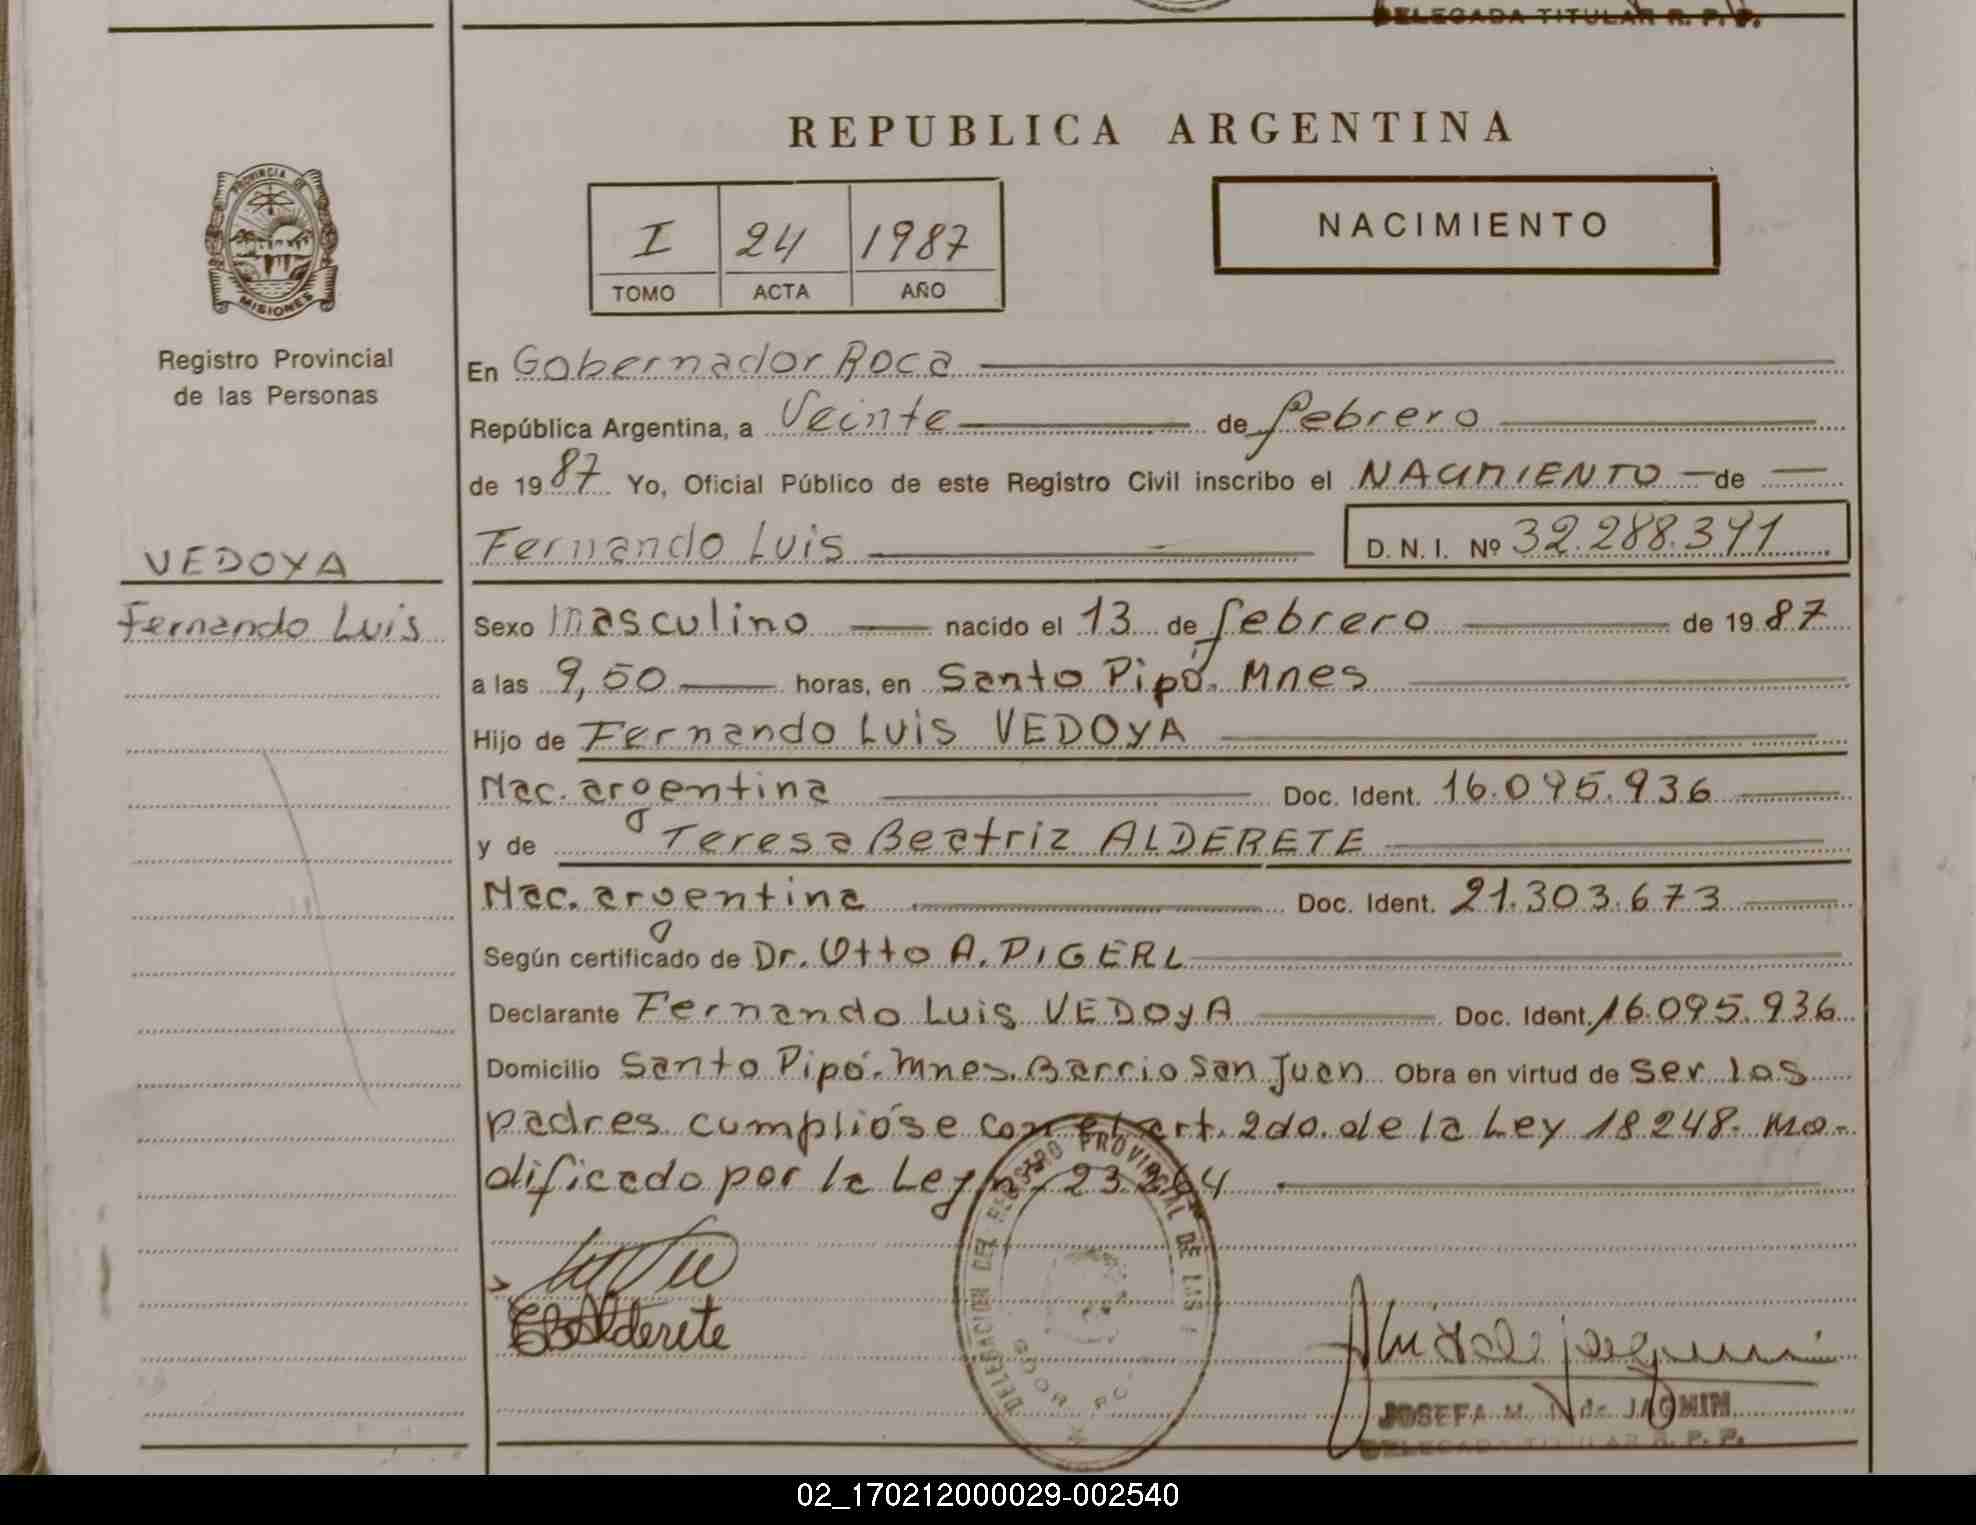 DELEGADA TITULAR R. P. P.
REPUBLICA ARGENTINA
PROVINCIA DE
MISIONES
Registro Provincial
de las Personas
I 24 1987
TOMO ACTA AÑO
NACIMIENTO
En Gobernador Roca
República Argentina, a Veinte de febrero
de 1987 Yo, Oficial Público de este Registro Civil inscribo el NACIMIENTO de
Fernando Luis D. N. I. Nº 32.288.391
VEDOYA
Fernando Luis
Sexo masculino nacido el 13 de febrero de 1987
a las 9,50 horas, en Santo Pipó. Mnes
Hijo de Fernando Luis VEDOYA
Nac. argentina Doc. Ident. 16.095.936
y de Teresa Beatriz ALDERETE
Nac. argentina Doc. Ident. 21.303.673
Según certificado de Dr. Otto A. PIGERL
Declarante Fernando Luis VEDOYA Doc. Ident. 16.095.936
Domicilio Santo Pipó. Mnes. Barrio San Juan Obra en virtud de ser los
padres cumplióse con el art. 2do. de la Ley 18248. Mo-
dificado por la Ley nº 23
Alderete
DELEGACION DEL REGISTRO PROVINCIAL DE LAS
JOSEFA M. de JACMIN
DELEGADA TITULAR R. P. P.
02_170212000029-002540